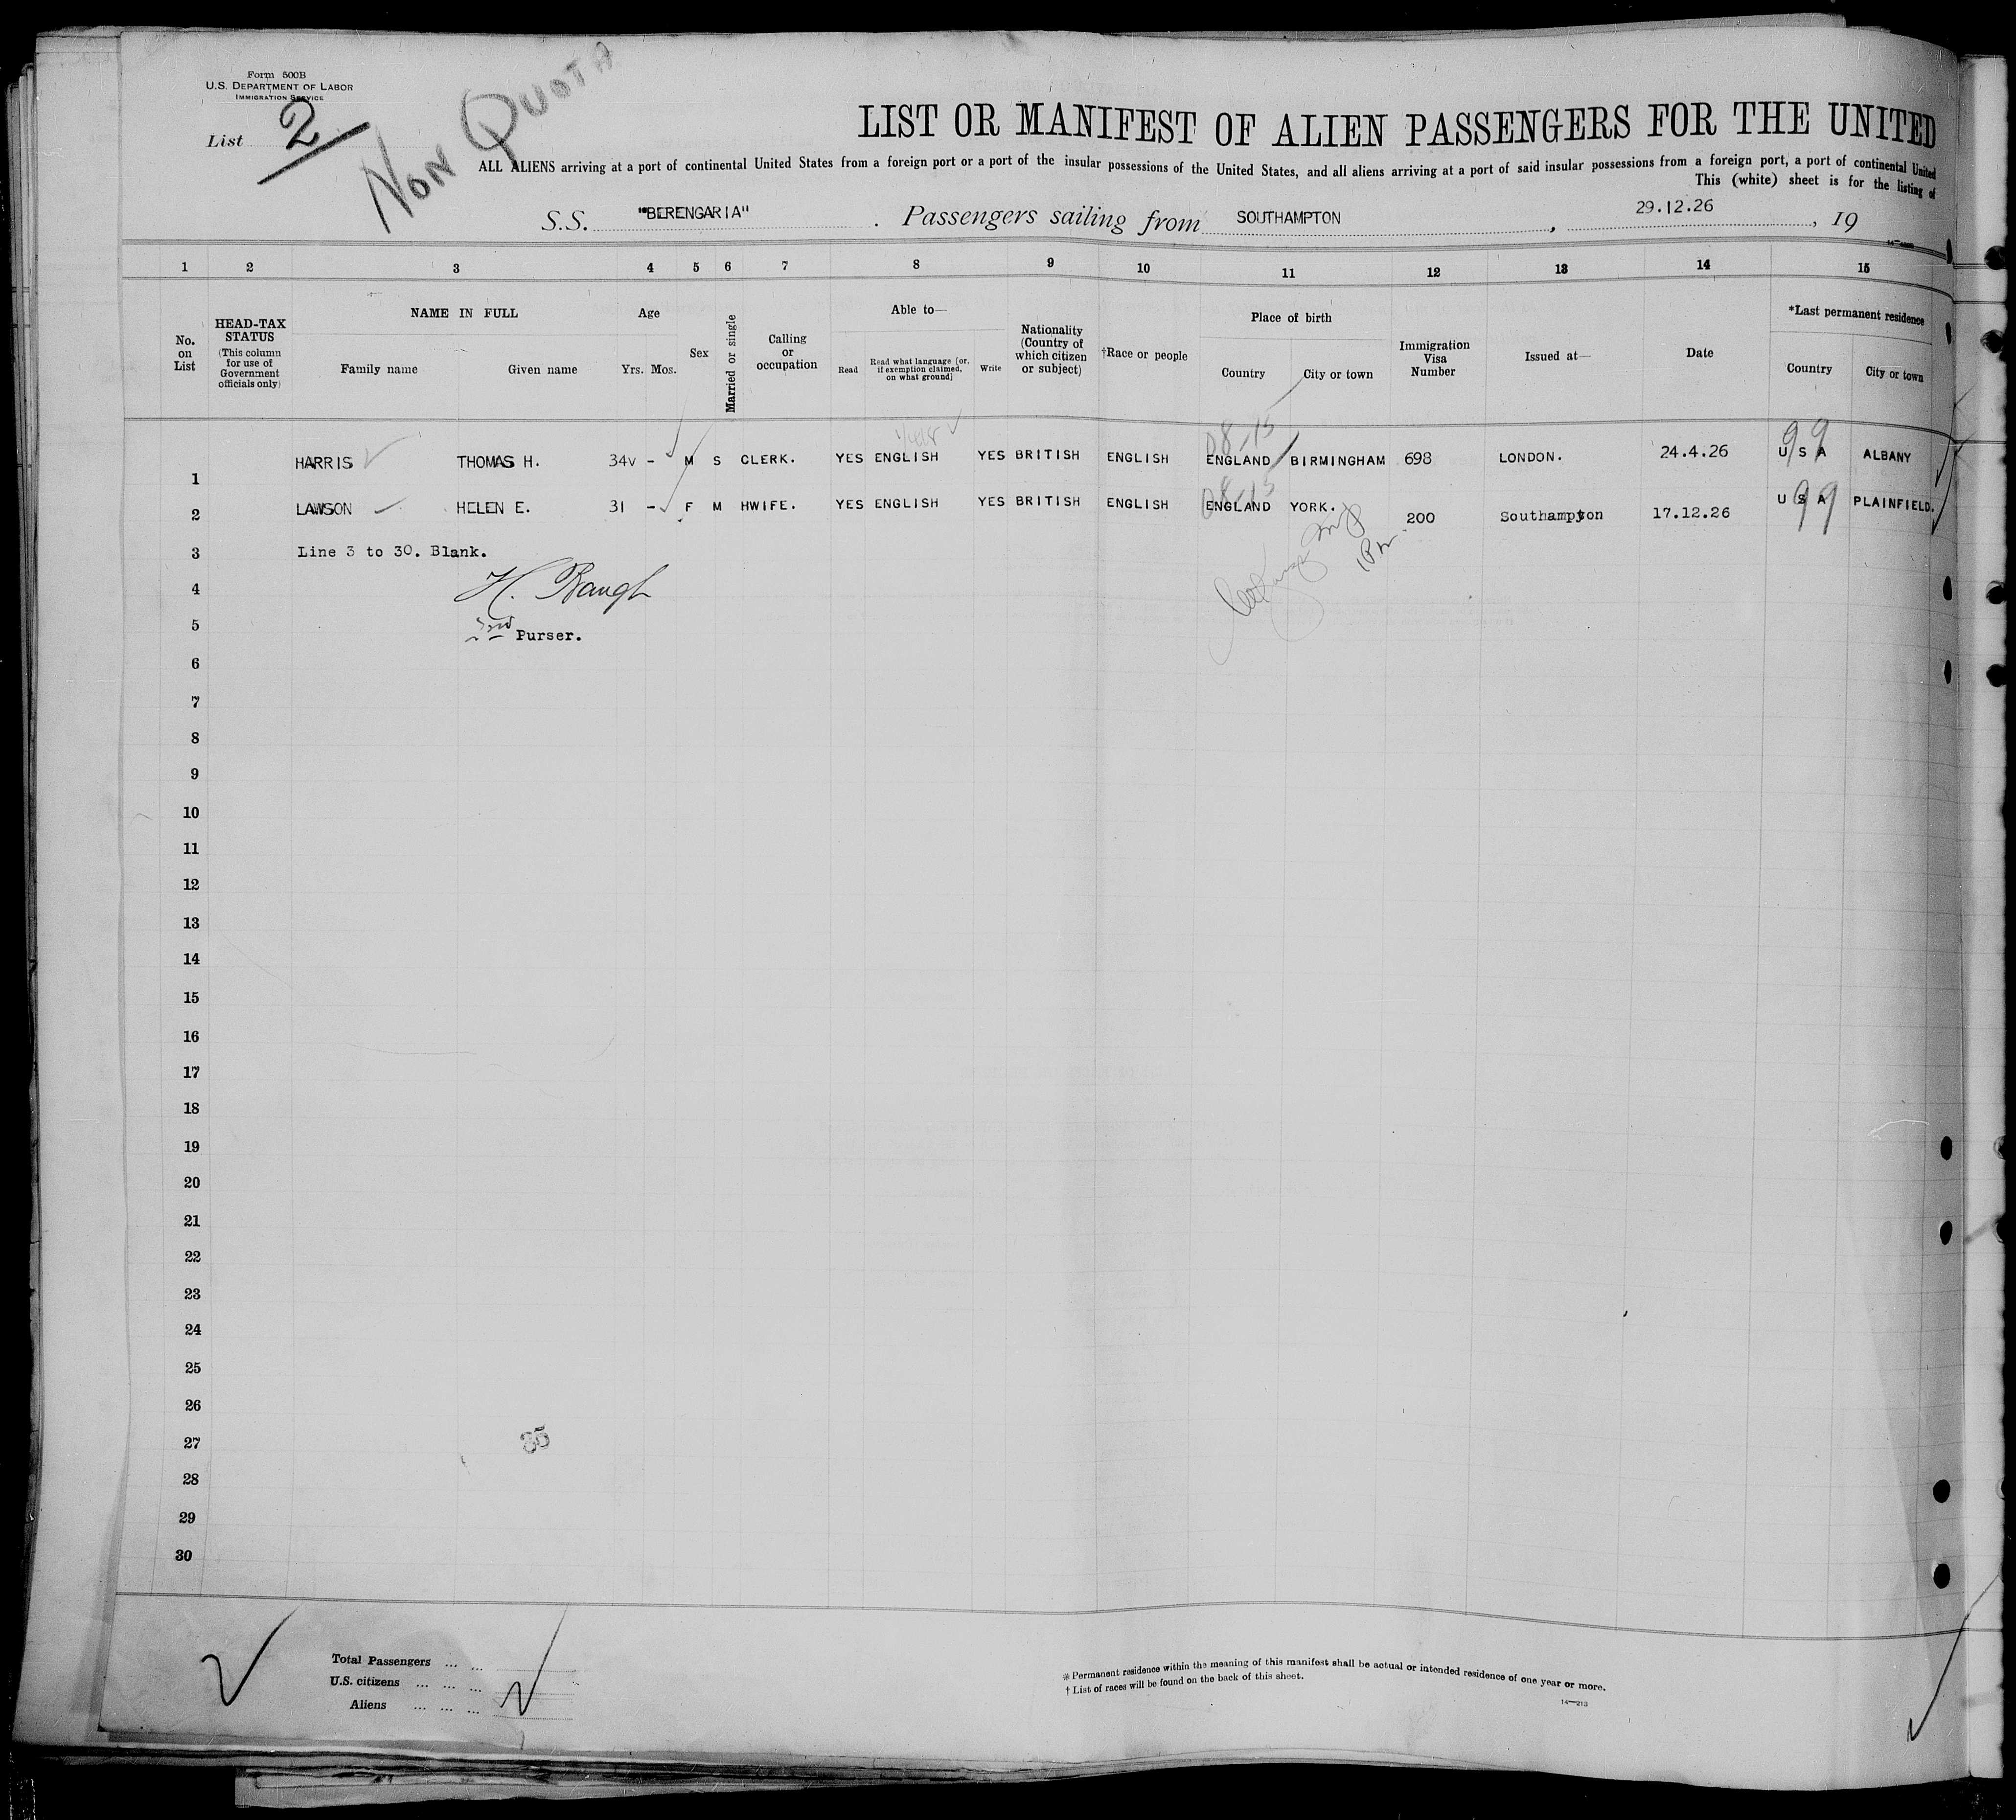 Form 500B
U.S. DEPARTMENT OF LABOR
IMMIGRATION SERVICE
List 2
NON QUOTA
LIST OR MANIFEST OF ALIEN PASSENGERS FOR THE UNITED
ALL ALIENS arriving at a port of continental United States from a foreign port or a port of the insular possessions of the United States, and all aliens arriving at a port of said insular possessions from a foreign port, a port of continental United
This (white) sheet is for the listing of
S.S. "BERENGARIA" . Passengers sailing from SOUTHAMPTON , 29.12.26 , 19
1 2 3 4 5 6 7 8 9 10 11 12 13 14 15
No. on List
HEAD-TAX STATUS (This column for use of Government officials only)
NAME IN FULL
Family name Given name
Age
Yrs. Mos.
Sex
Married or single
Calling or occupation
Able to—
Read
Read what language [or, if exemption claimed, on what ground]
Write
Nationality (Country of which citizen or subject)
†Race or people
Place of birth
Country City or town
Immigration Visa Number
Issued at—
Date
*Last permanent residence
Country City or town
1 HARRIS THOMAS H. 34 - M S CLERK. YES ENGLISH YES BRITISH ENGLISH ENGLAND BIRMINGHAM 698 LONDON. 24.4.26 U S A ALBANY
08-15
99
2 LAWSON HELEN E. 31 - F M HWIFE. YES ENGLISH YES BRITISH ENGLISH ENGLAND YORK. 200 Southampton 17.12.26 U S A PLAINFIELD.
08-15
99
3 Line 3 to 30. Blank.
4 H. Baugh
5 2nd Purser.
6
7
8
9
10
11
12
13
14
15
16
17
18
19
20
21
22
23
24
25
26
27
28
29
30
35
Total Passengers ... ...
U.S. citizens ... ... ...
Aliens ... ... ...
* Permanent residence within the meaning of this manifest shall be actual or intended residence of one year or more.
† List of races will be found on the back of this sheet.
14—213